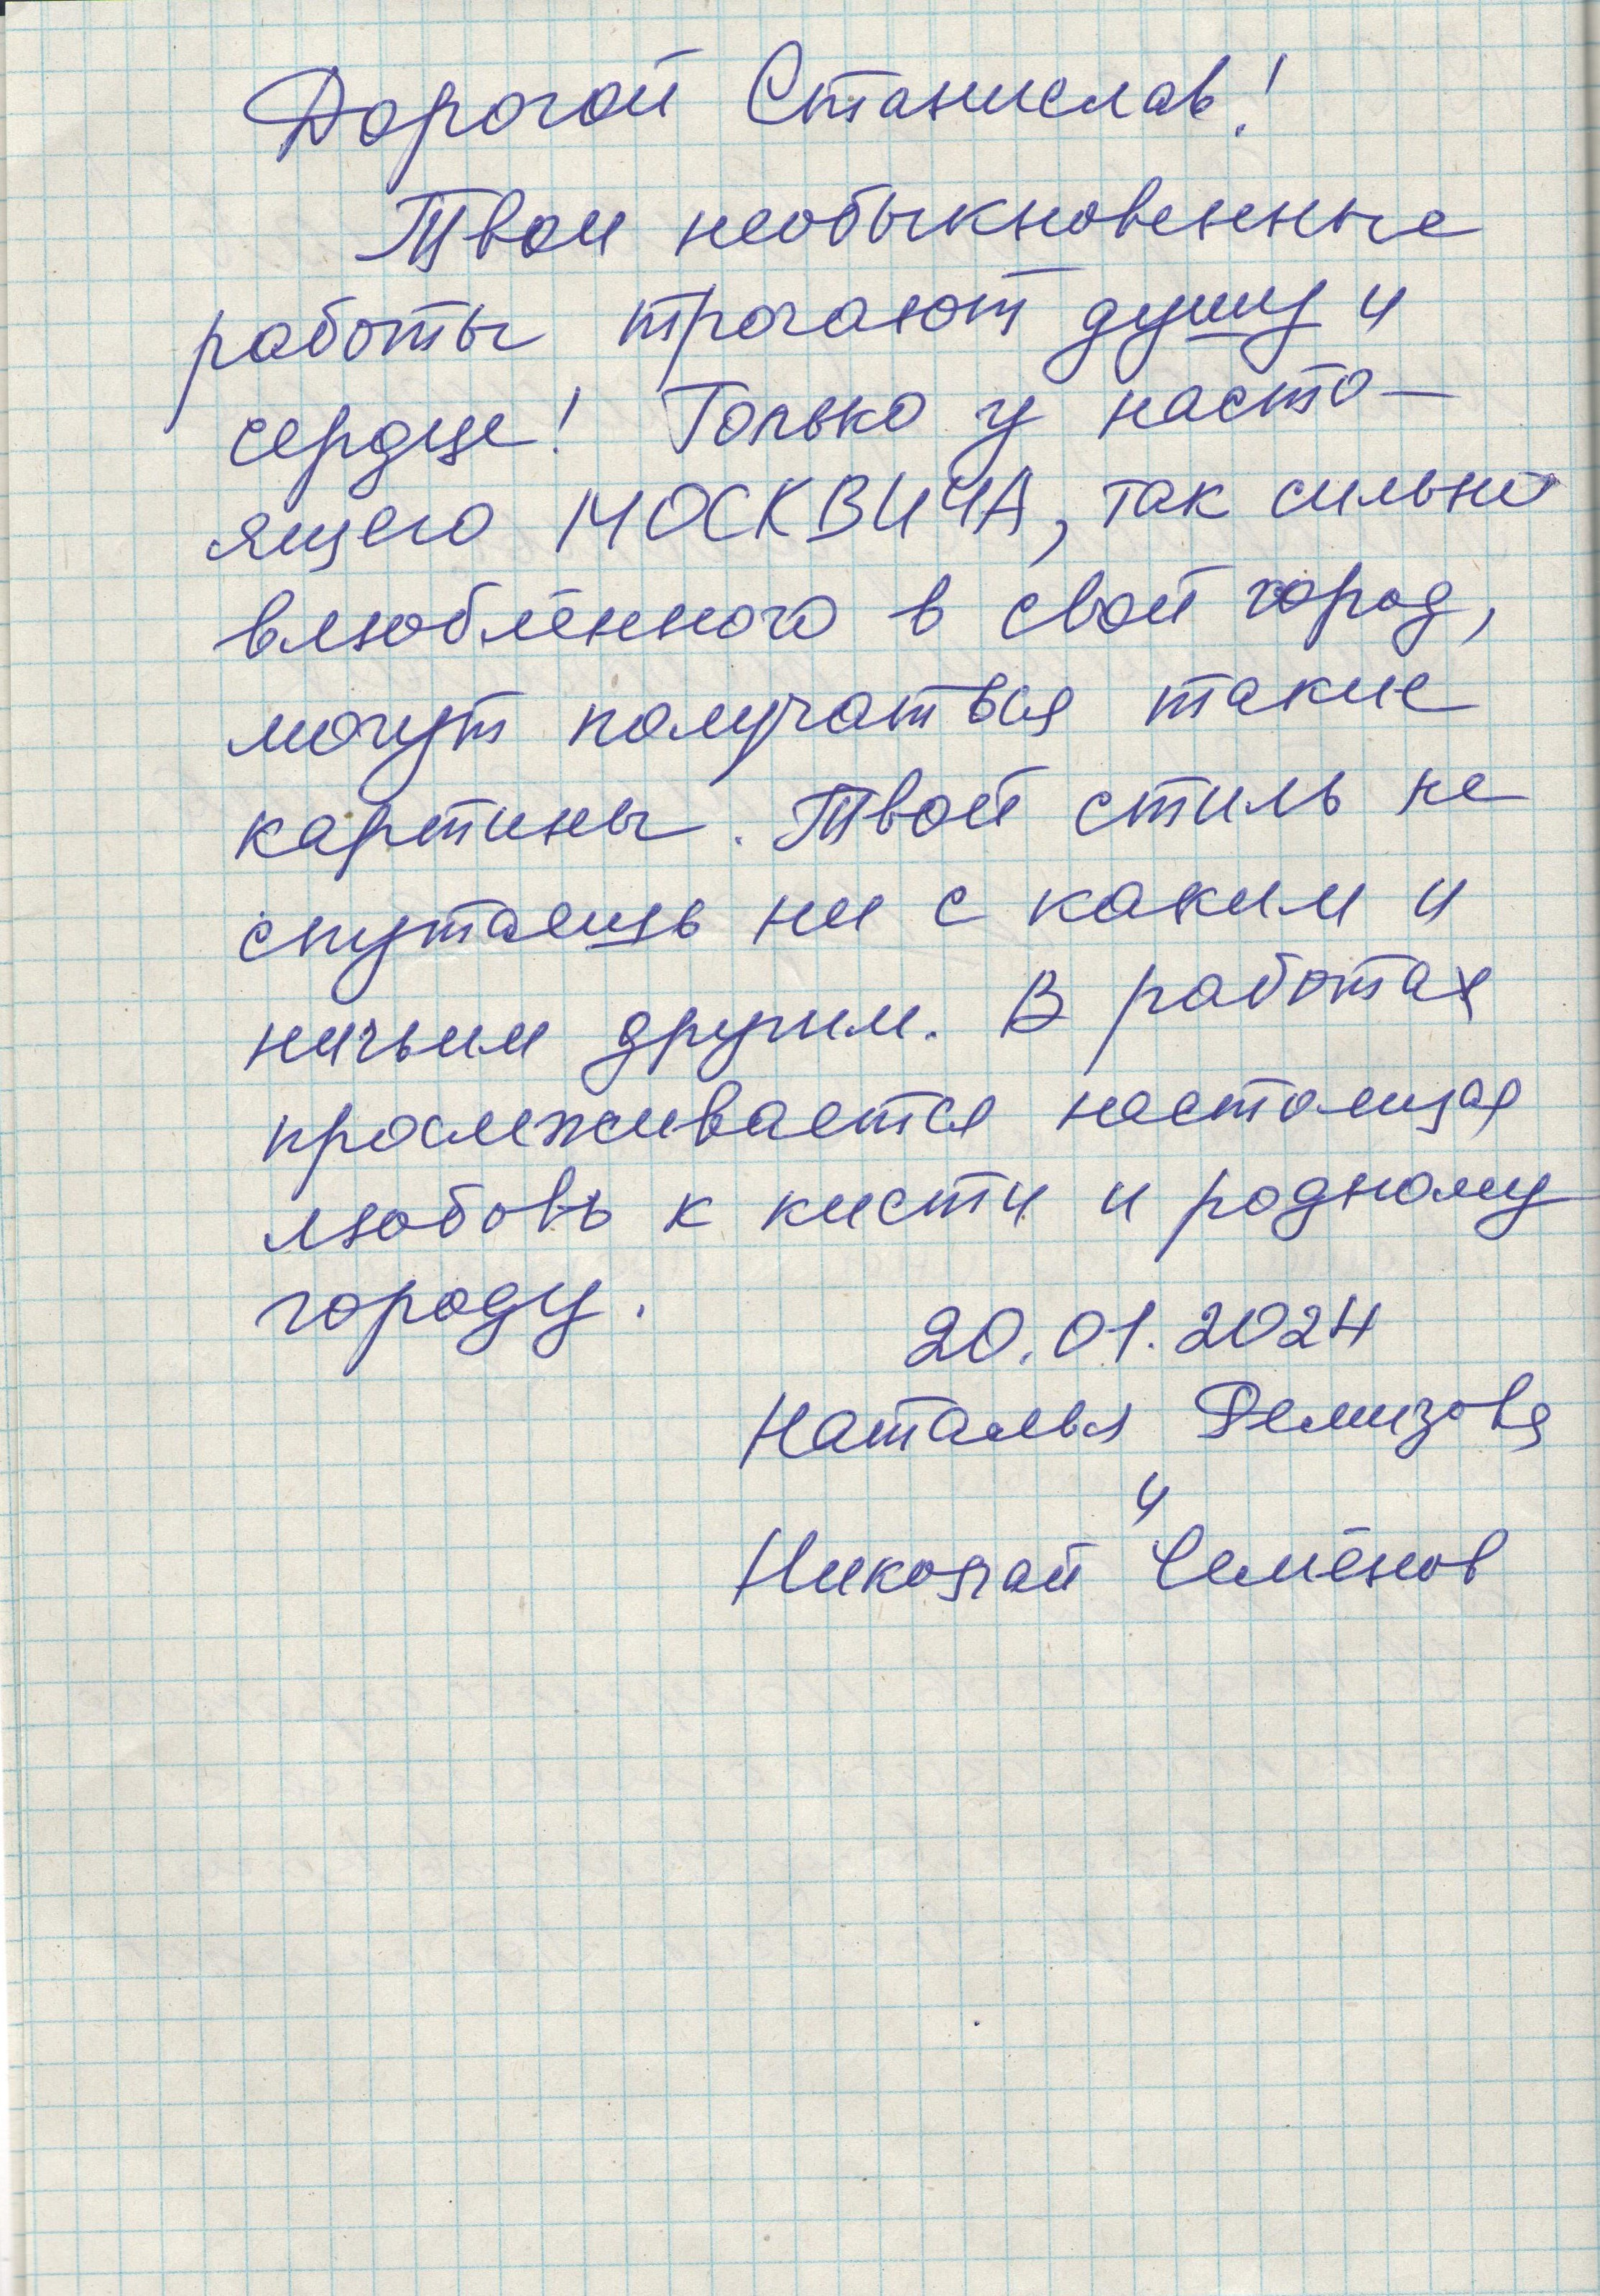 Дорогой Станислав!
Твои необыкновенные
работы трогают душу и
сердце! Только у насто-
ящего МОСКВИЧА, так сильно
влюблённого в свой город,
могут получаться такие
картины. Твой стиль не
спутаешь ни с каким и
ничьим другим. В работах
прослеживается настоящая
любовь к кисти и родному
городу.
20.01.2024
Наталья Ремизова
и
Николай Семёнов